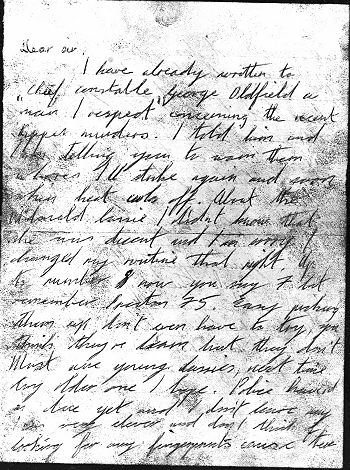 Dear sir,
I have already written to
"Chief constable" George Oldfield a
man I respect concerning the recent
ripper murders. I told him and
I am telling you to warn them
whores I'll strike again and soon
when heat cools off. About the
Mcdonald lassie I didn't know that
she was decent and I am sorry I
changed my routine that night. Up
to number 8 now you say 7 but
remember Preston 75. Easy picking
them up, don't even have to try, you
think they're learn but they don't
Most are young lassies, next time
try older one I hope. Police haven't
a clue yet and I don't leave any
I am very clever and don't think of
looking for any fingerprints cause there